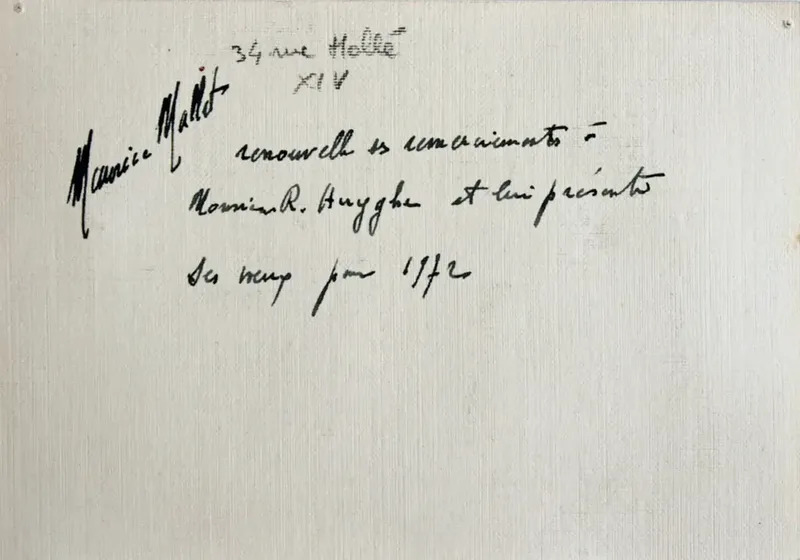 34 rue Hallé
XIV
Maurice Mallet
renouvelle ses remerciements à
Monsieur R. Huyghe et lui présente
ses vœux pour 1972